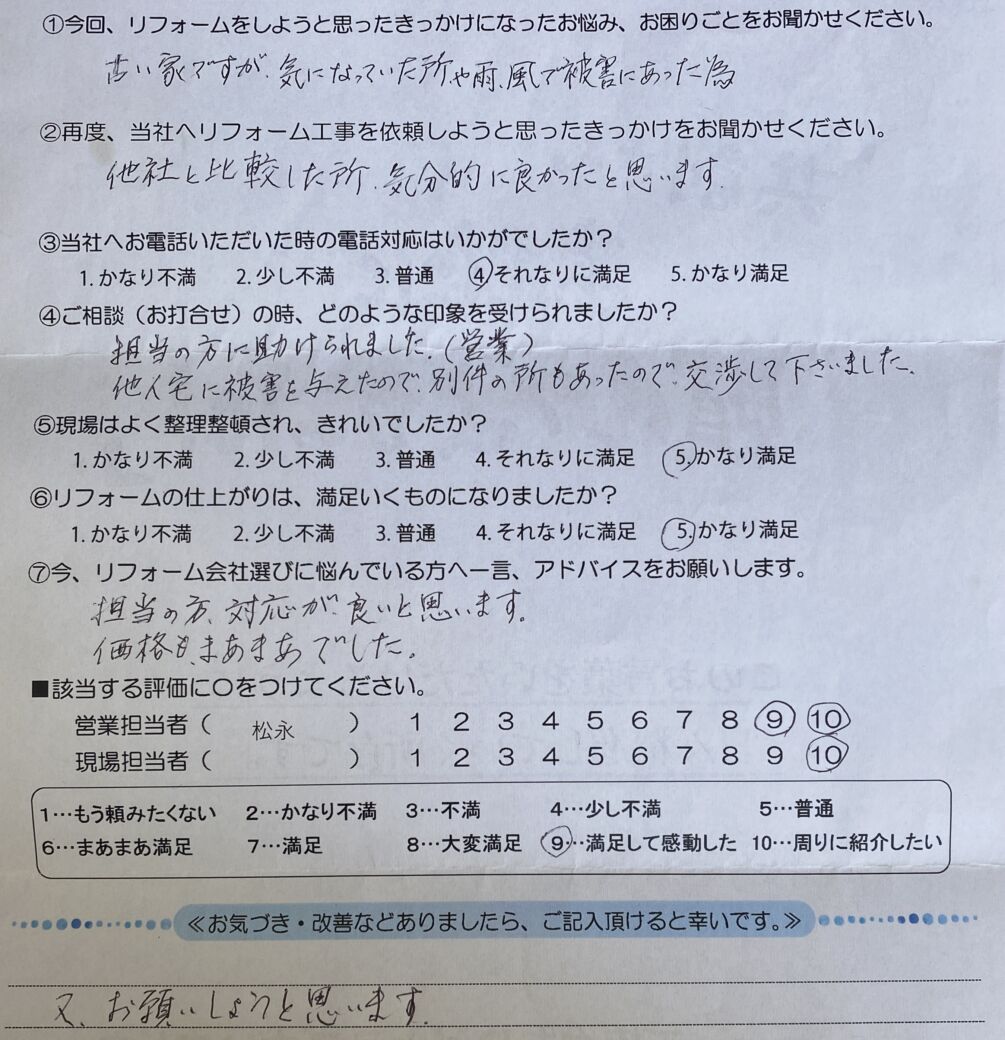 ①今回、リフォームをしようと思ったきっかけになったお悩み、お困りごとをお聞かせください。
古い家ですが、気になっていた所や雨、風で被害にあった為
②再度、当社へリフォーム工事を依頼しようと思ったきっかけをお聞かせください。
他社と比較した所、気分的に良かったと思います。
③当社へお電話いただいた時の電話対応はいかがでしたか？
1. かなり不満 2. 少し不満 3. 普通 4. それなりに満足 5. かなり満足
④ご相談（お打合せ）の時、どのような印象を受けられましたか？
担当の方に助けられました。（営業）
他人宅に被害を与えたので、別件の所もあったので、交渉して下さいました。
⑤現場はよく整理整頓され、きれいでしたか？
1. かなり不満 2. 少し不満 3. 普通 4. それなりに満足 5. かなり満足
⑥リフォームの仕上がりは、満足いくものになりましたか？
1. かなり不満 2. 少し不満 3. 普通 4. それなりに満足 5. かなり満足
⑦今、リフォーム会社選びに悩んでいる方へ一言、アドバイスをお願いします。
担当の方、対応が良いと思います。
価格も、まあまあでした。
■該当する評価に○をつけてください。
営業担当者（ 松永 ） 1 2 3 4 5 6 7 8 9 10
現場担当者（ ） 1 2 3 4 5 6 7 8 9 10
1…もう頼みたくない 2…かなり不満 3…不満 4…少し不満 5…普通
6…まあまあ満足 7…満足 8…大変満足 9…満足して感動した 10…周りに紹介したい
≪お気づき・改善などありましたら、ご記入頂けると幸いです。≫
又、お願いしようと思います。